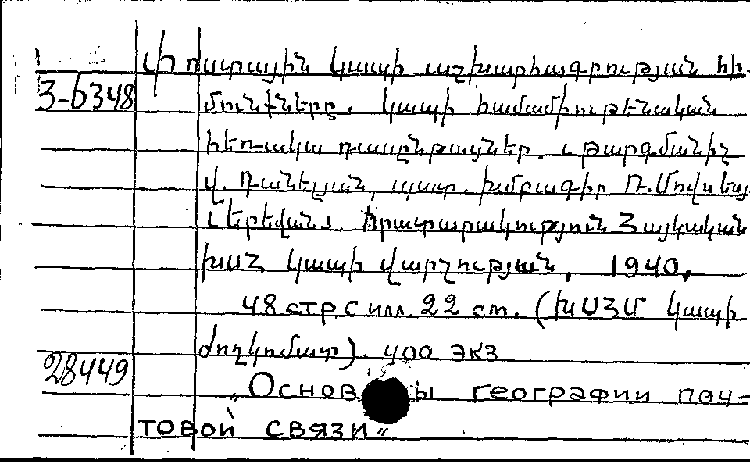 Փոստային կապի աշխարհագրության հի-
3-6348 մունքները. կապի համամիութենական
հեռակա դասընթացներ. թարգմանիչ
Վ. Դանելյան, պատ. խմբագիր Ռ. Մովսեսյ
Երեվան, Հրատարակություն Հայկական
ԽՍՀ կապի վարչության, 1940,
48 стр. с илл. 22 см. (ԽՍՀՄ կապի
ժողկոմատ). 400 экз
28449
„Основы географии поч-
товой связи"